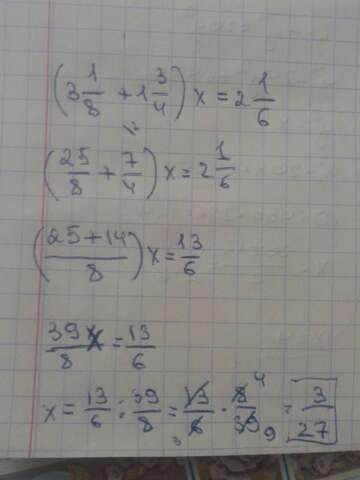 (3 1/8 + 1 3/4) x = 2 1/6
(25/8 + 7/4) x = 2 1/6
((25+14)/8) x = 13/6
39x/8 = 13/6
x = 13/6 : 39/8 = 13/6 · 8/39 = 3/27